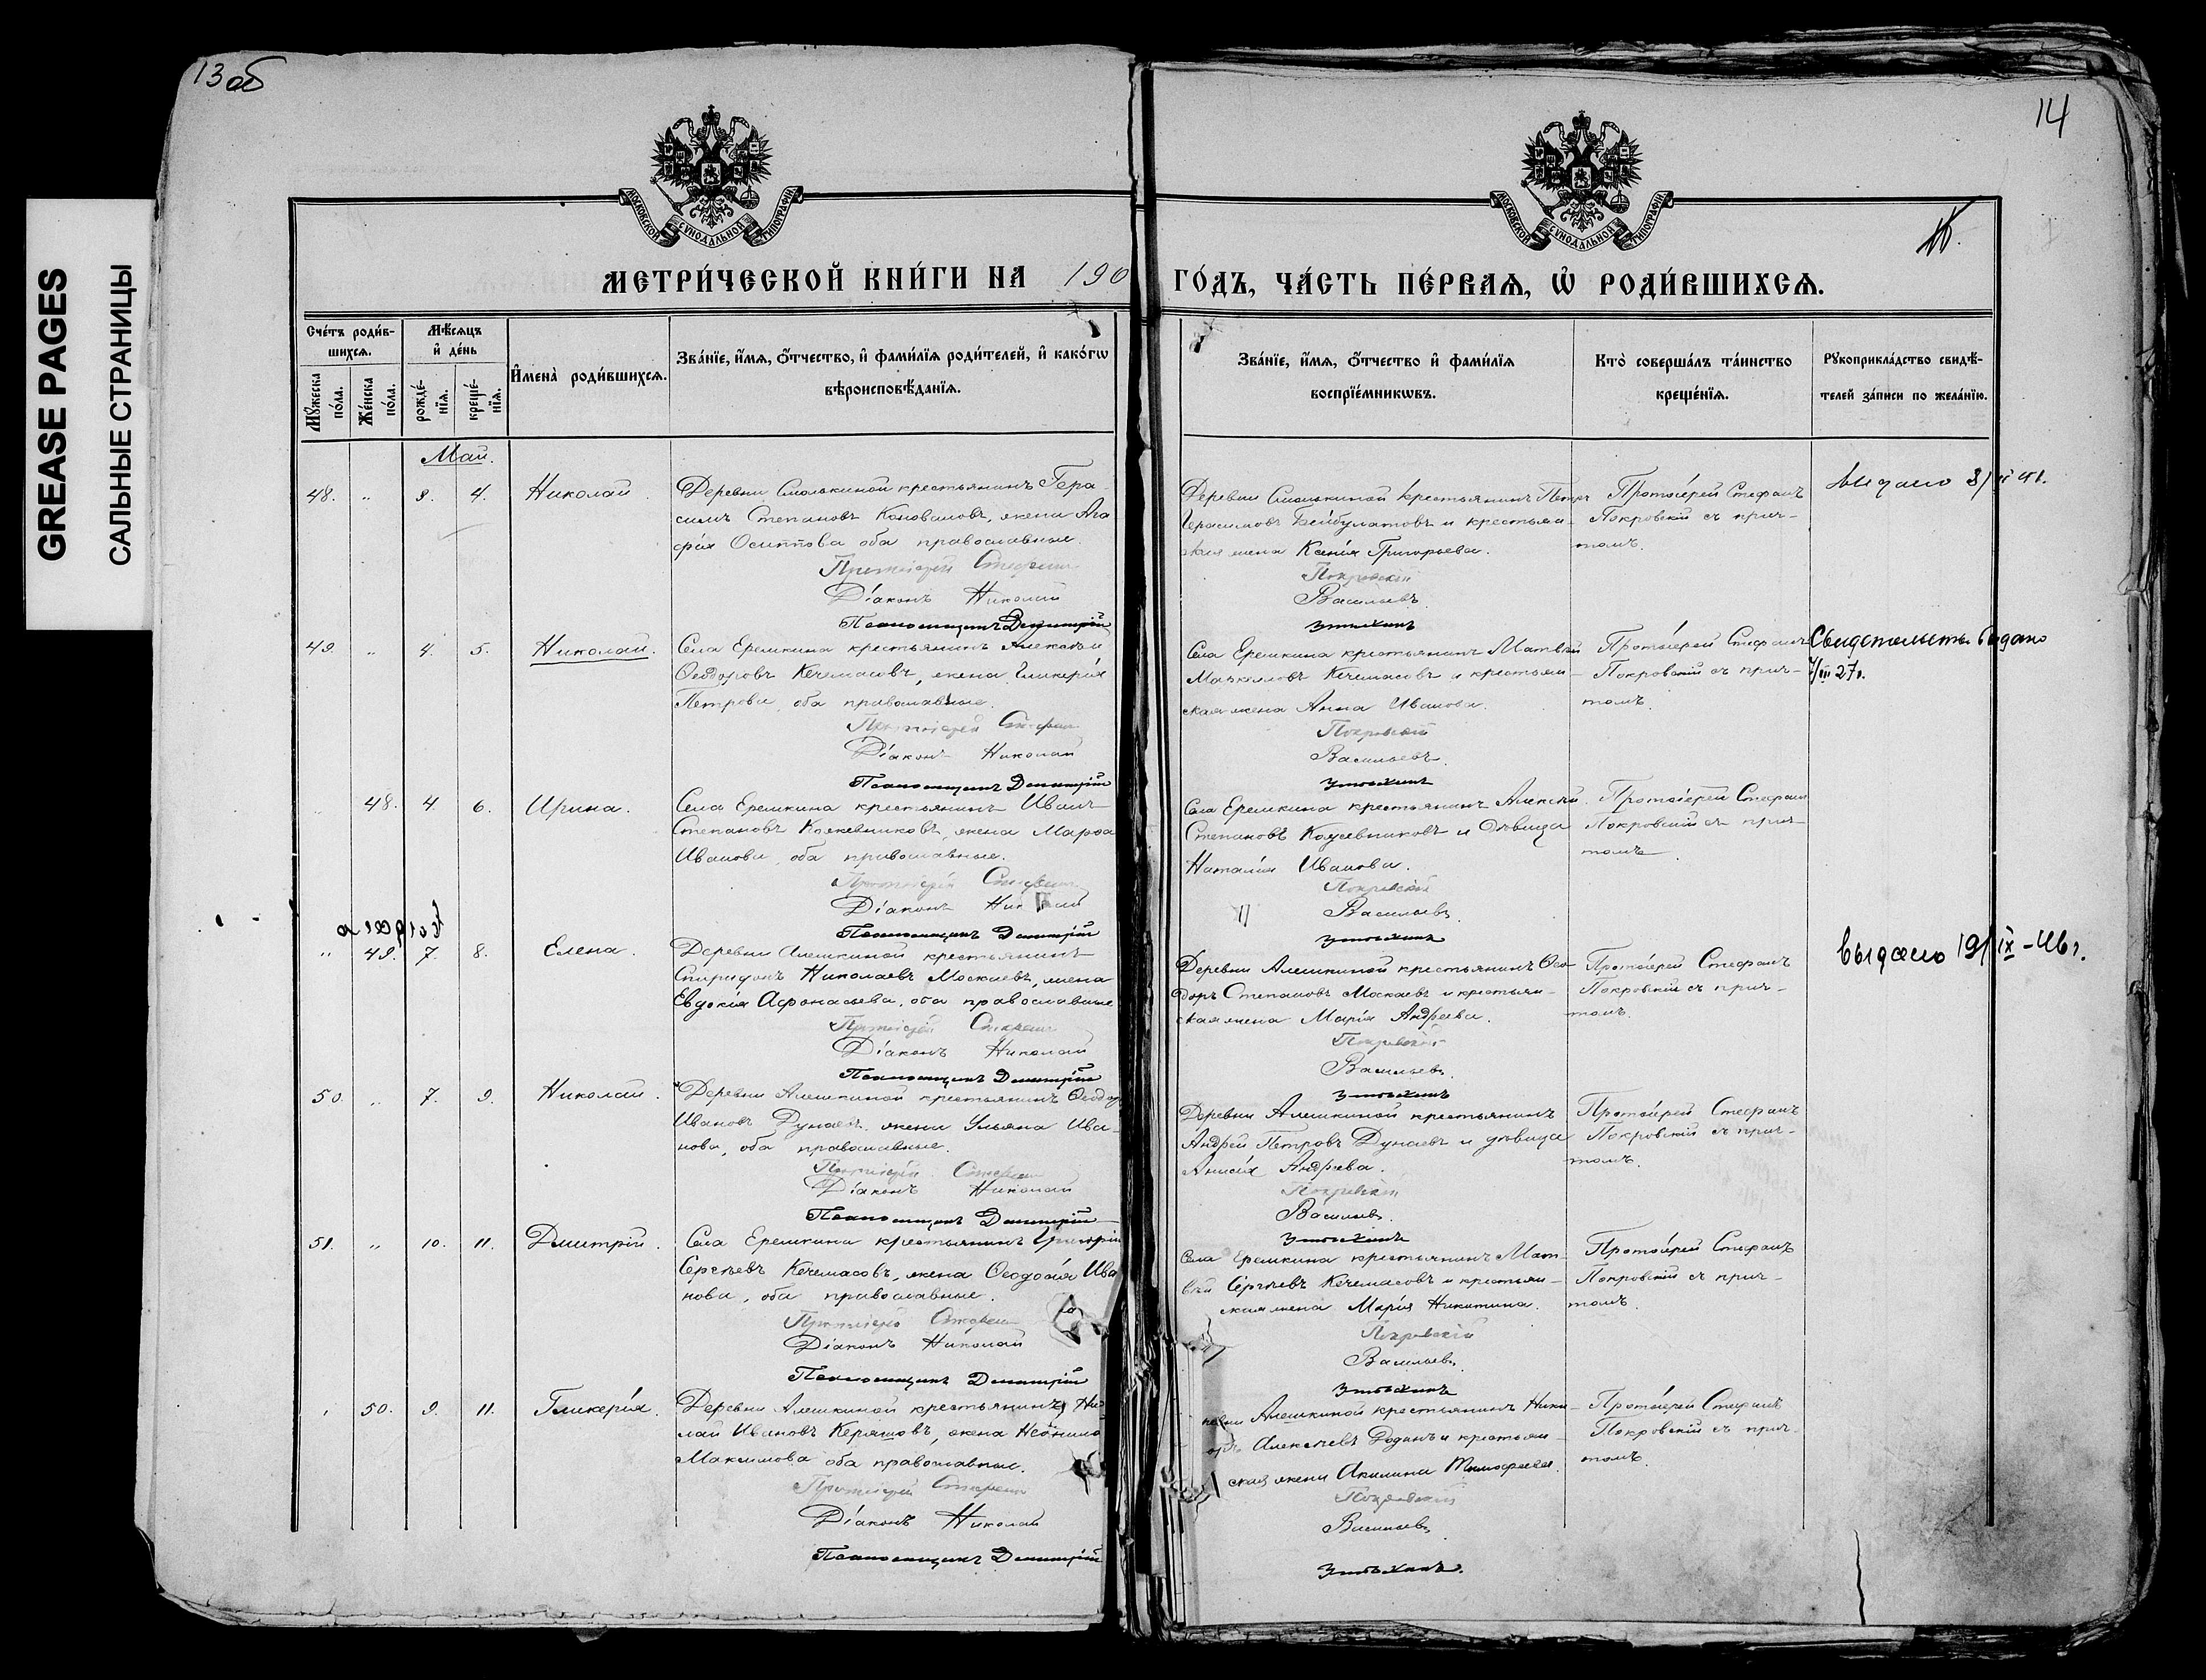 GREASE PAGES
САЛЬНЫЕ СТРАНИЦЫ
13 об
14
МОСКОВСКОЙ СѴНОДАЛЬНОЙ ТИПОГРАФІИ
МОСКОВСКОЙ СѴНОДАЛЬНОЙ ТИПОГРАФІИ
МЕТРИ́ЧЕСКОЙ КНИ́ГИ НА 190
ГО́ДЪ, ЧА́СТЬ ПЕ́РВАѦ, Ѡ҆ РОДИ́ВШИХСѦ.
Сче́тъ роди́в-
шихсѧ.
Мꙋ́жеска
по́ла.
Же́нска
по́ла.
Мѣ́сѧцъ
и҆ де́нь
рожде́-
нїѧ.
креще́-
нїѧ.
И҆мена̀ роди́вшихсѧ.
Зва́нїе, и҆́мѧ, ѻ҆́тчество, и҆ фами́лїѧ роди́телей, и҆ како́гѡ
вѣроисповѣ́данїѧ.
Зва́нїе, и҆́мѧ, ѻ҆́тчество и҆ фами́лїѧ
воспрїе́мникѡвъ.
Кто̀ соверша́лъ та́инство
креще́нїѧ.
Рꙋкоприкла́дство свидѣ́-
телей за́писи по жела́нїю.
Май.
48. " 3. 4. Николай.
Деревни Смолькиной крестьянинъ Гера-
симъ Степановъ Коноваловъ, жена Ага
фія Осиппова оба православные.
Протоіерей Стефанъ
Діаконъ Николай
Псаломщикъ Димитрій
Деревни Смолькиной крестьянинъ Петръ
Герасимовъ Бейбулатовъ и крестьян-
ская жена Ксенія Григорьева.
Покровскій
Васильевъ.
Протоіерей Стефанъ
Покровскій съ прич-
томъ.
Выдано
49. " 4. 5. Николай.
Села Еремкина крестьянинъ Алексѣй
Ѳеодоровъ Кечемасовъ, жена Гликерія
Петрова, оба православные.
Протоіерей Стефанъ
Діаконъ Николай
Псаломщикъ Димитрій
Села Еремкина крестьянинъ Матвѣй
Маркеловъ Кечемасовъ и крестьян-
ская жена Анна Иванова.
Покровскій
Васильевъ.
Протоіерей Стефанъ
Покровскій съ прич-
томъ.
Свидетельств. выдано
7/III 27г.
48. 4 6. Ирина.
Села Еремкина крестьянинъ Иванъ
Степановъ Кожевниковъ, жена Марѳа
Иванова, оба православные.
Протоіерей Стефанъ
Діаконъ Николай
Псаломщикъ Димитрій
Села Еремкина крестьянинъ Алексѣй
Степановъ Кожевниковъ и дѣвица
Наталія Иванова.
Покровскій
Васильевъ.
Протоіерей Стефанъ
Покровскій съ прич-
томъ.
" 49. 7. 8. Елена.
Деревни Алешкиной крестьянинъ
Спиридонъ Николаевъ Москаевъ, жена
Евдокія Афонасьева, оба православные
Протоіерей Стефанъ
Діаконъ Николай
Псаломщикъ Димитрій
Деревни Алешкиной крестьянинъ Ѳео-
доръ Степановъ Москаевъ и крестьян-
ская жена Марія Андреева.
Покровскій
Васильевъ.
Протоіерей Стефанъ
Покровскій съ прич-
томъ.
Выдано 19/IX-46г.
50. " 7. 9. Николай.
Деревни Алешкиной крестьянинъ Ѳеодоръ
Ивановъ Дунаевъ, жена Ульяна Ива-
нова, оба православные.
Протоіерей Стефанъ
Діаконъ Николай
Псаломщикъ Димитрій
Деревни Алешкиной крестьянинъ
Андрей Петровъ Дунаевъ и дѣвица
Анисія Андреева.
Покровскій
Васильевъ.
Протоіерей Стефанъ
Покровскій съ прич-
томъ.
51. " 10. 11. Дмитрій.
Села Еремкина крестьянинъ Григорій
Сергѣевъ Кечемасовъ, жена Ѳеодосія Ива
нова, оба православные.
Протоіерей Стефанъ
Діаконъ Николай
Псаломщикъ Димитрій
Села Еремкина крестьянинъ Мат-
вѣй Сергѣевъ Кечемасовъ и крестьян-
ская жена Марія Никитина.
Покровскій
Васильевъ.
Протоіерей Стефанъ
Покровскій съ прич-
томъ.
50. 9. 11. Гликерія.
Деревни Алешкиной крестьянинъ Нико
лай Ивановъ Керяшовъ, жена Неонила
Максимова оба православные.
Протоіерей Стефанъ
Діаконъ Николай
Псаломщикъ Димитрій
Алешкиной крестьянинъ Ники-
Алексѣевъ и крестьян-
ская жена Акилина Тимофеева.
Покровскій
Васильевъ
Протоіерей Стефанъ
Покровскій съ прич-
томъ.